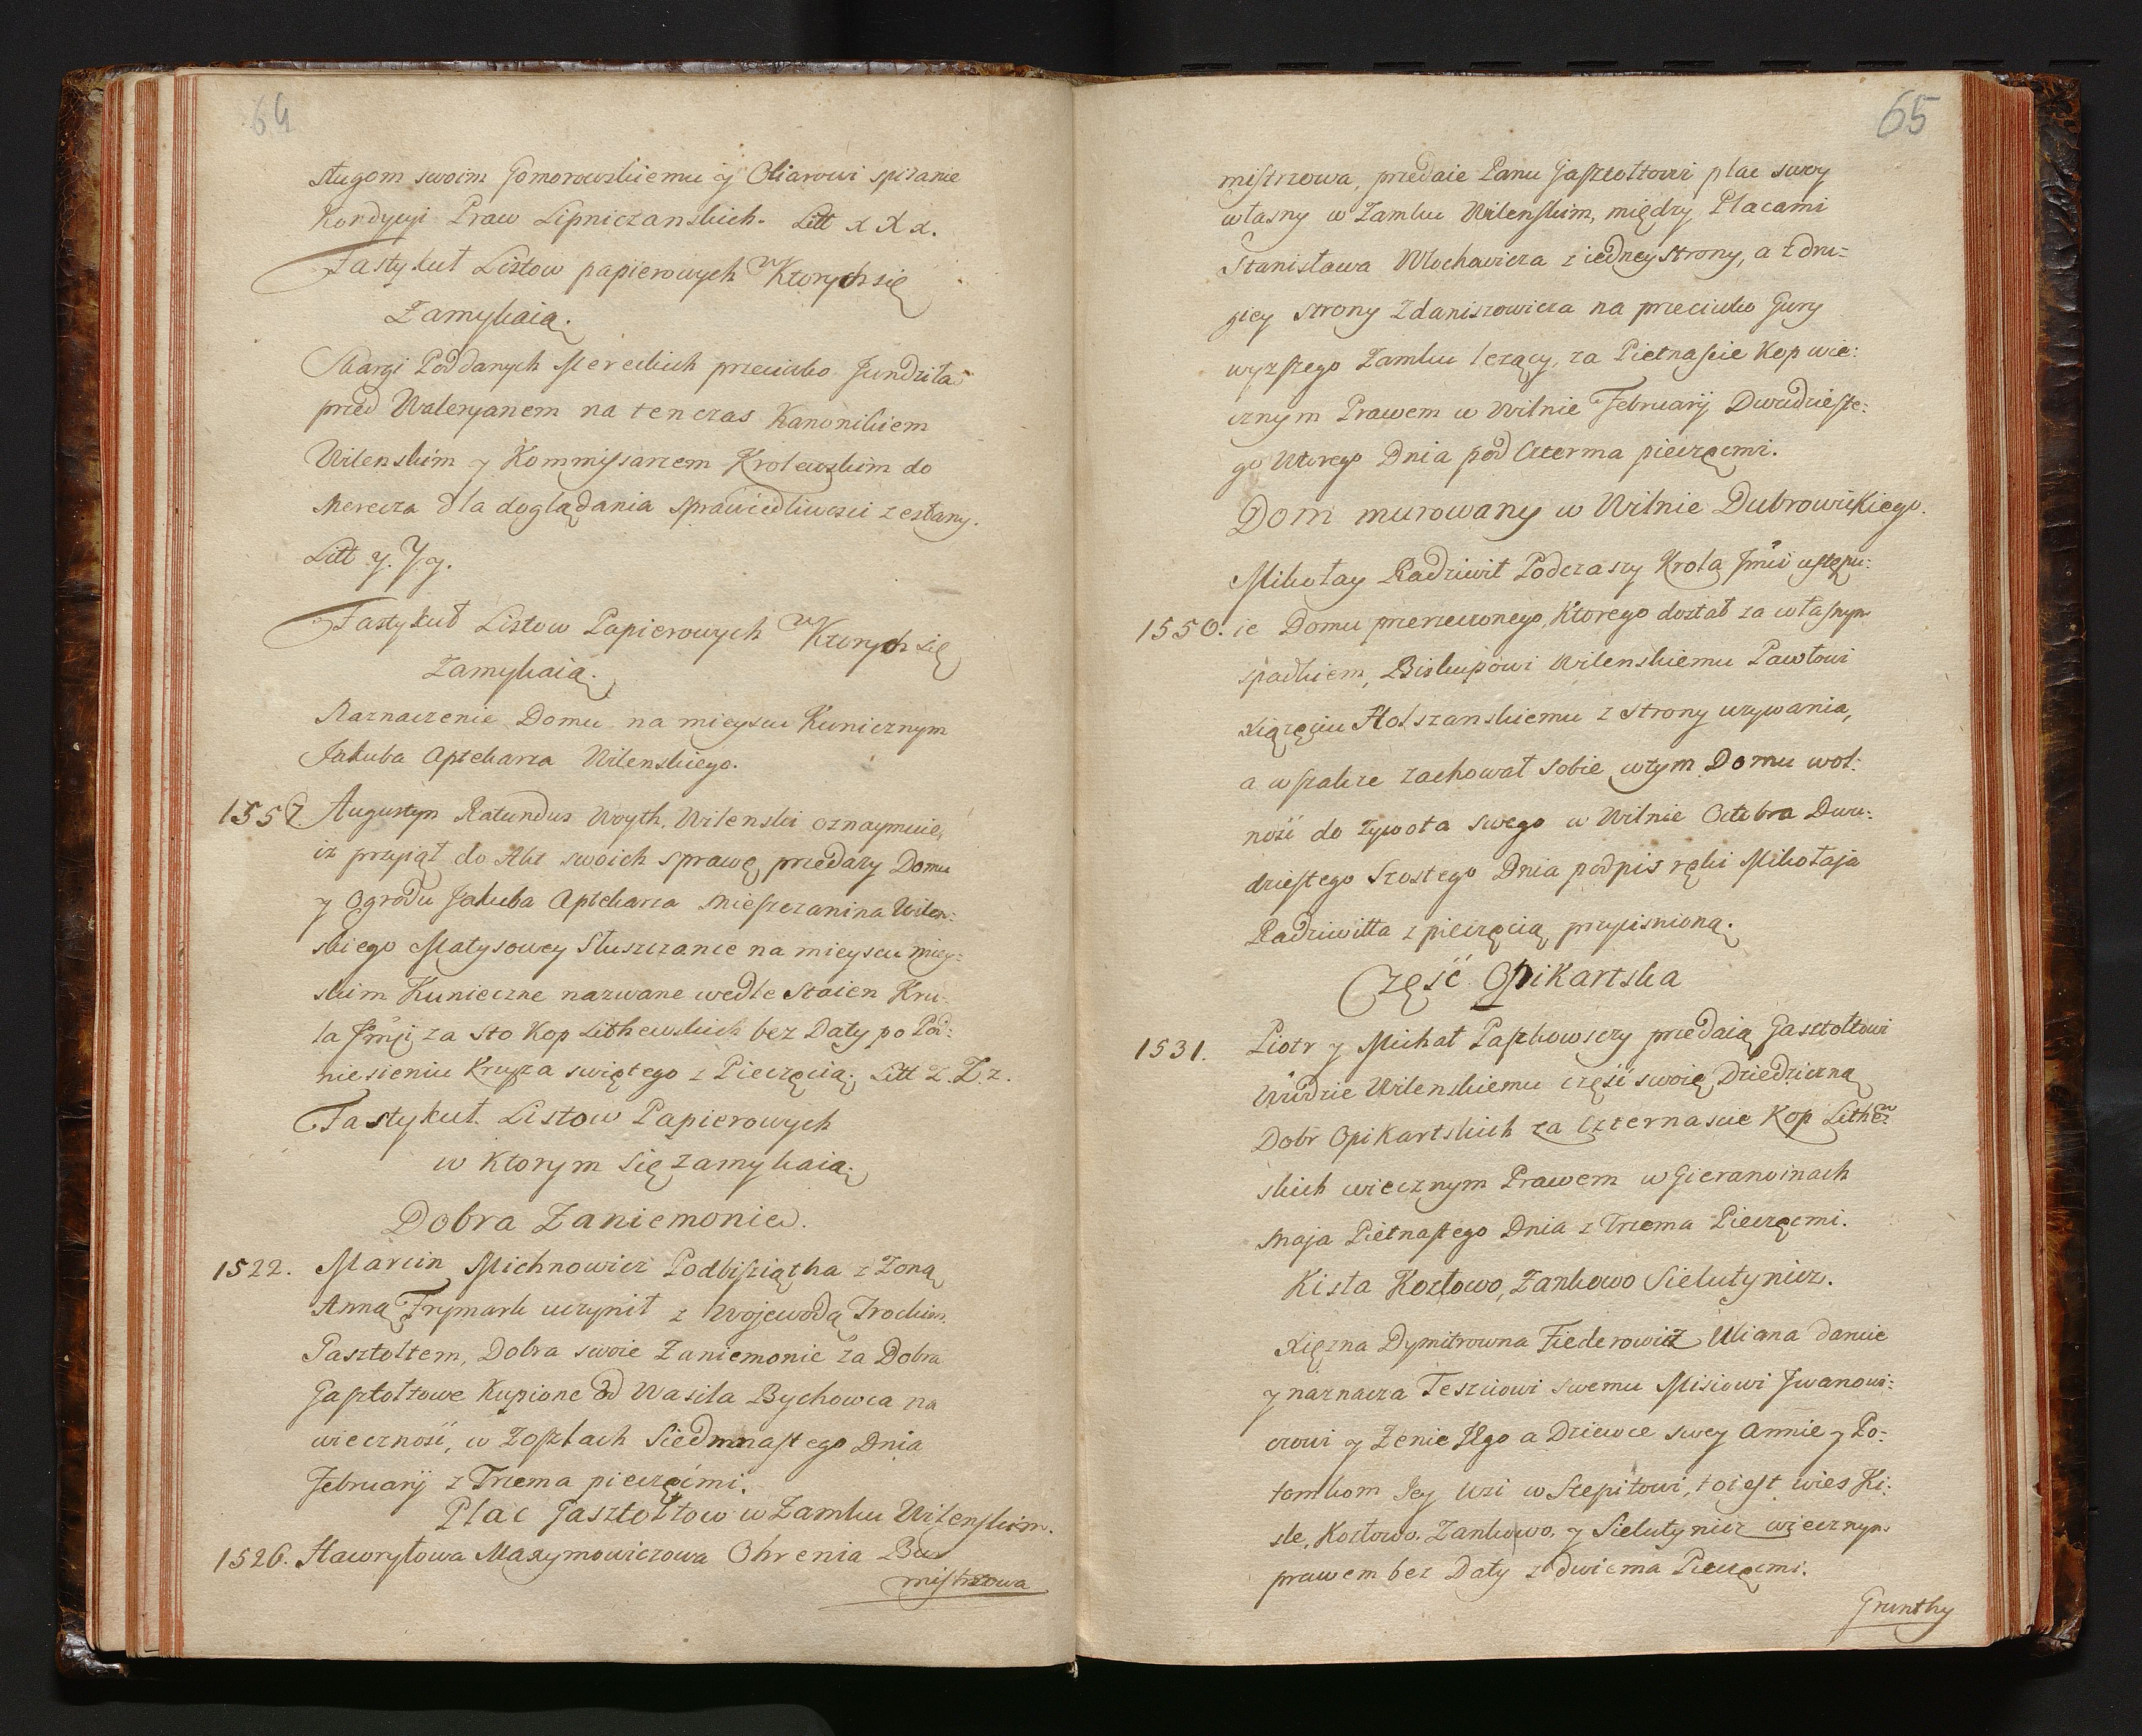 64
sługom swoim Gomorowskiemu y Oliarowi spisanie
Kondycyi Praw Lipniczanskich. Litt x X x.
Fastykuł Listow papierowych w Ktorych się
Zamykaią.
Skargi Poddanych Mereckich przeciwko Jundziła
przed Waleryanem na ten czas Kanonikiem
Wilenskim y Kommissarzem Krolewskim do
Merecza dla doglądania sprawiedliwosci zesłany.
Litt y. Y. y.
Fastykuł Listow Papierowych w Ktorych się
Zamykaią.
Naznaczenie Domu na mieyscu Kunicznym
Jakuba Aptekarza Wilenskiego.
1557. Augustyn Ratundus Woyth. Wilenski oznaymuie,
iż przyiął do Akt swoich sprawę przedaży Domu
y Ogrodu Jakuba Aptekarza Mieszczanina Wilen:
skiego Matysowey Słuszczance na mieyscu miey:
skim Kunieczne nazwane wedle Staien Kru:
la Jmci za sto Kop Lithewskich bez Daty po Pod:
niesieniu Krzyża swiętego z Pieczęcią. Litt Z. Z. z.
Fastykuł Listow Papierowych
w Ktorym się zamykaią.
Dobra Zaniemonie.
1522. Marcin Michnowicz Podbipiątka z Zoną
Anną Frymark uczynił z Wojewodą Trockim.
Gasztołtem, Dobra swoie Zaniemonie za Dobra
Gasztołtowe Kupione od Wasila Bychowca na
wieczność, w Zoszlach Siedmnastego Dnia
Februarij z Trzema pieczęćmi.
Plac Gasztołtow w Zamku Wilenskim.
1526. Hawryłowa Maxymowiczowa Ohrenia Bur
mistrzowa
65
mistrzowa, przedaie Panu Gasztołtowi plac swoy
własny w Zamku Wilenskim, między Placami
Stanisława Włochowicza z iedney strony, a z dru=
giey strony Zdaniszowicza na przeciwko Gury
wyższego Zamku leżący, za Pietnascie Kop wie:
cznym Prawem w Wilnie Februarij Dwudzieste:
go Wtorego Dnia pod Czterma pieczęcmi.
Dom murowany w Wilnie Dubrowickiego.
Mikołay Radziwił Podczaszy Krola Jmci ustępu:
1550. ie Domu przerzeczonego, Ktorego dostał za własnym
spadkiem, Biskupowi Wilenskiemu Pawłowi
Xiążęciu Holszanskiemu z strony używania,
a wszakże zachował sobie w tym Domu wol:
ność do żywota swego w Wilnie Octobra Dwu:
dziestego Szostego Dnia podpis ręki Mikołaja
Radziwiłła z pieczęcią przyciśnioną.
Część Opikartska
1531. Piotr y Michał Paszkowiczy przedaią Gasztołtowi
Wdzie Wilenskiemu część swoię Dziedziczną
Dobr Opikartskich za Czternascie Kop Lithew
skich wiecznym Prawem w Gieranoinach
Maja Pietnastego Dnia z Trzema Pieczęcmi.
Kisla Kozłowo, Zankowo Sielutynicz.
Xiężna Dymitrowna Fiederowicz Uliana daruie
y naznacza Tesciowi swemu Misiowi Jwanowi:
czowi y Żenie Jego a Dziewce swey Annie y Po:
tomkom Jey wsi w Scepitowi, to iest wies Ki:
sle, Kozłowo. Zankowo. y Sielutynicz wiecznym
prawem bez Daty z dwiema Pieczęcmi.
Grunthy